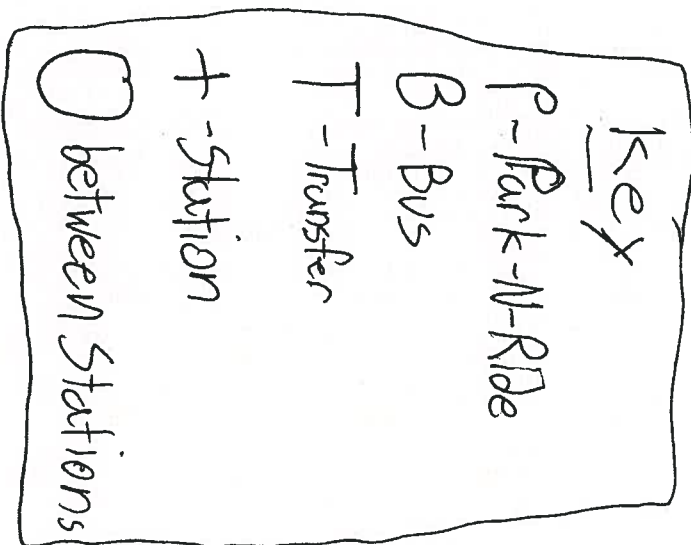 Key
P-Park-N-Ride
B-Bus
T-Transfer
+-Station
O between Stations